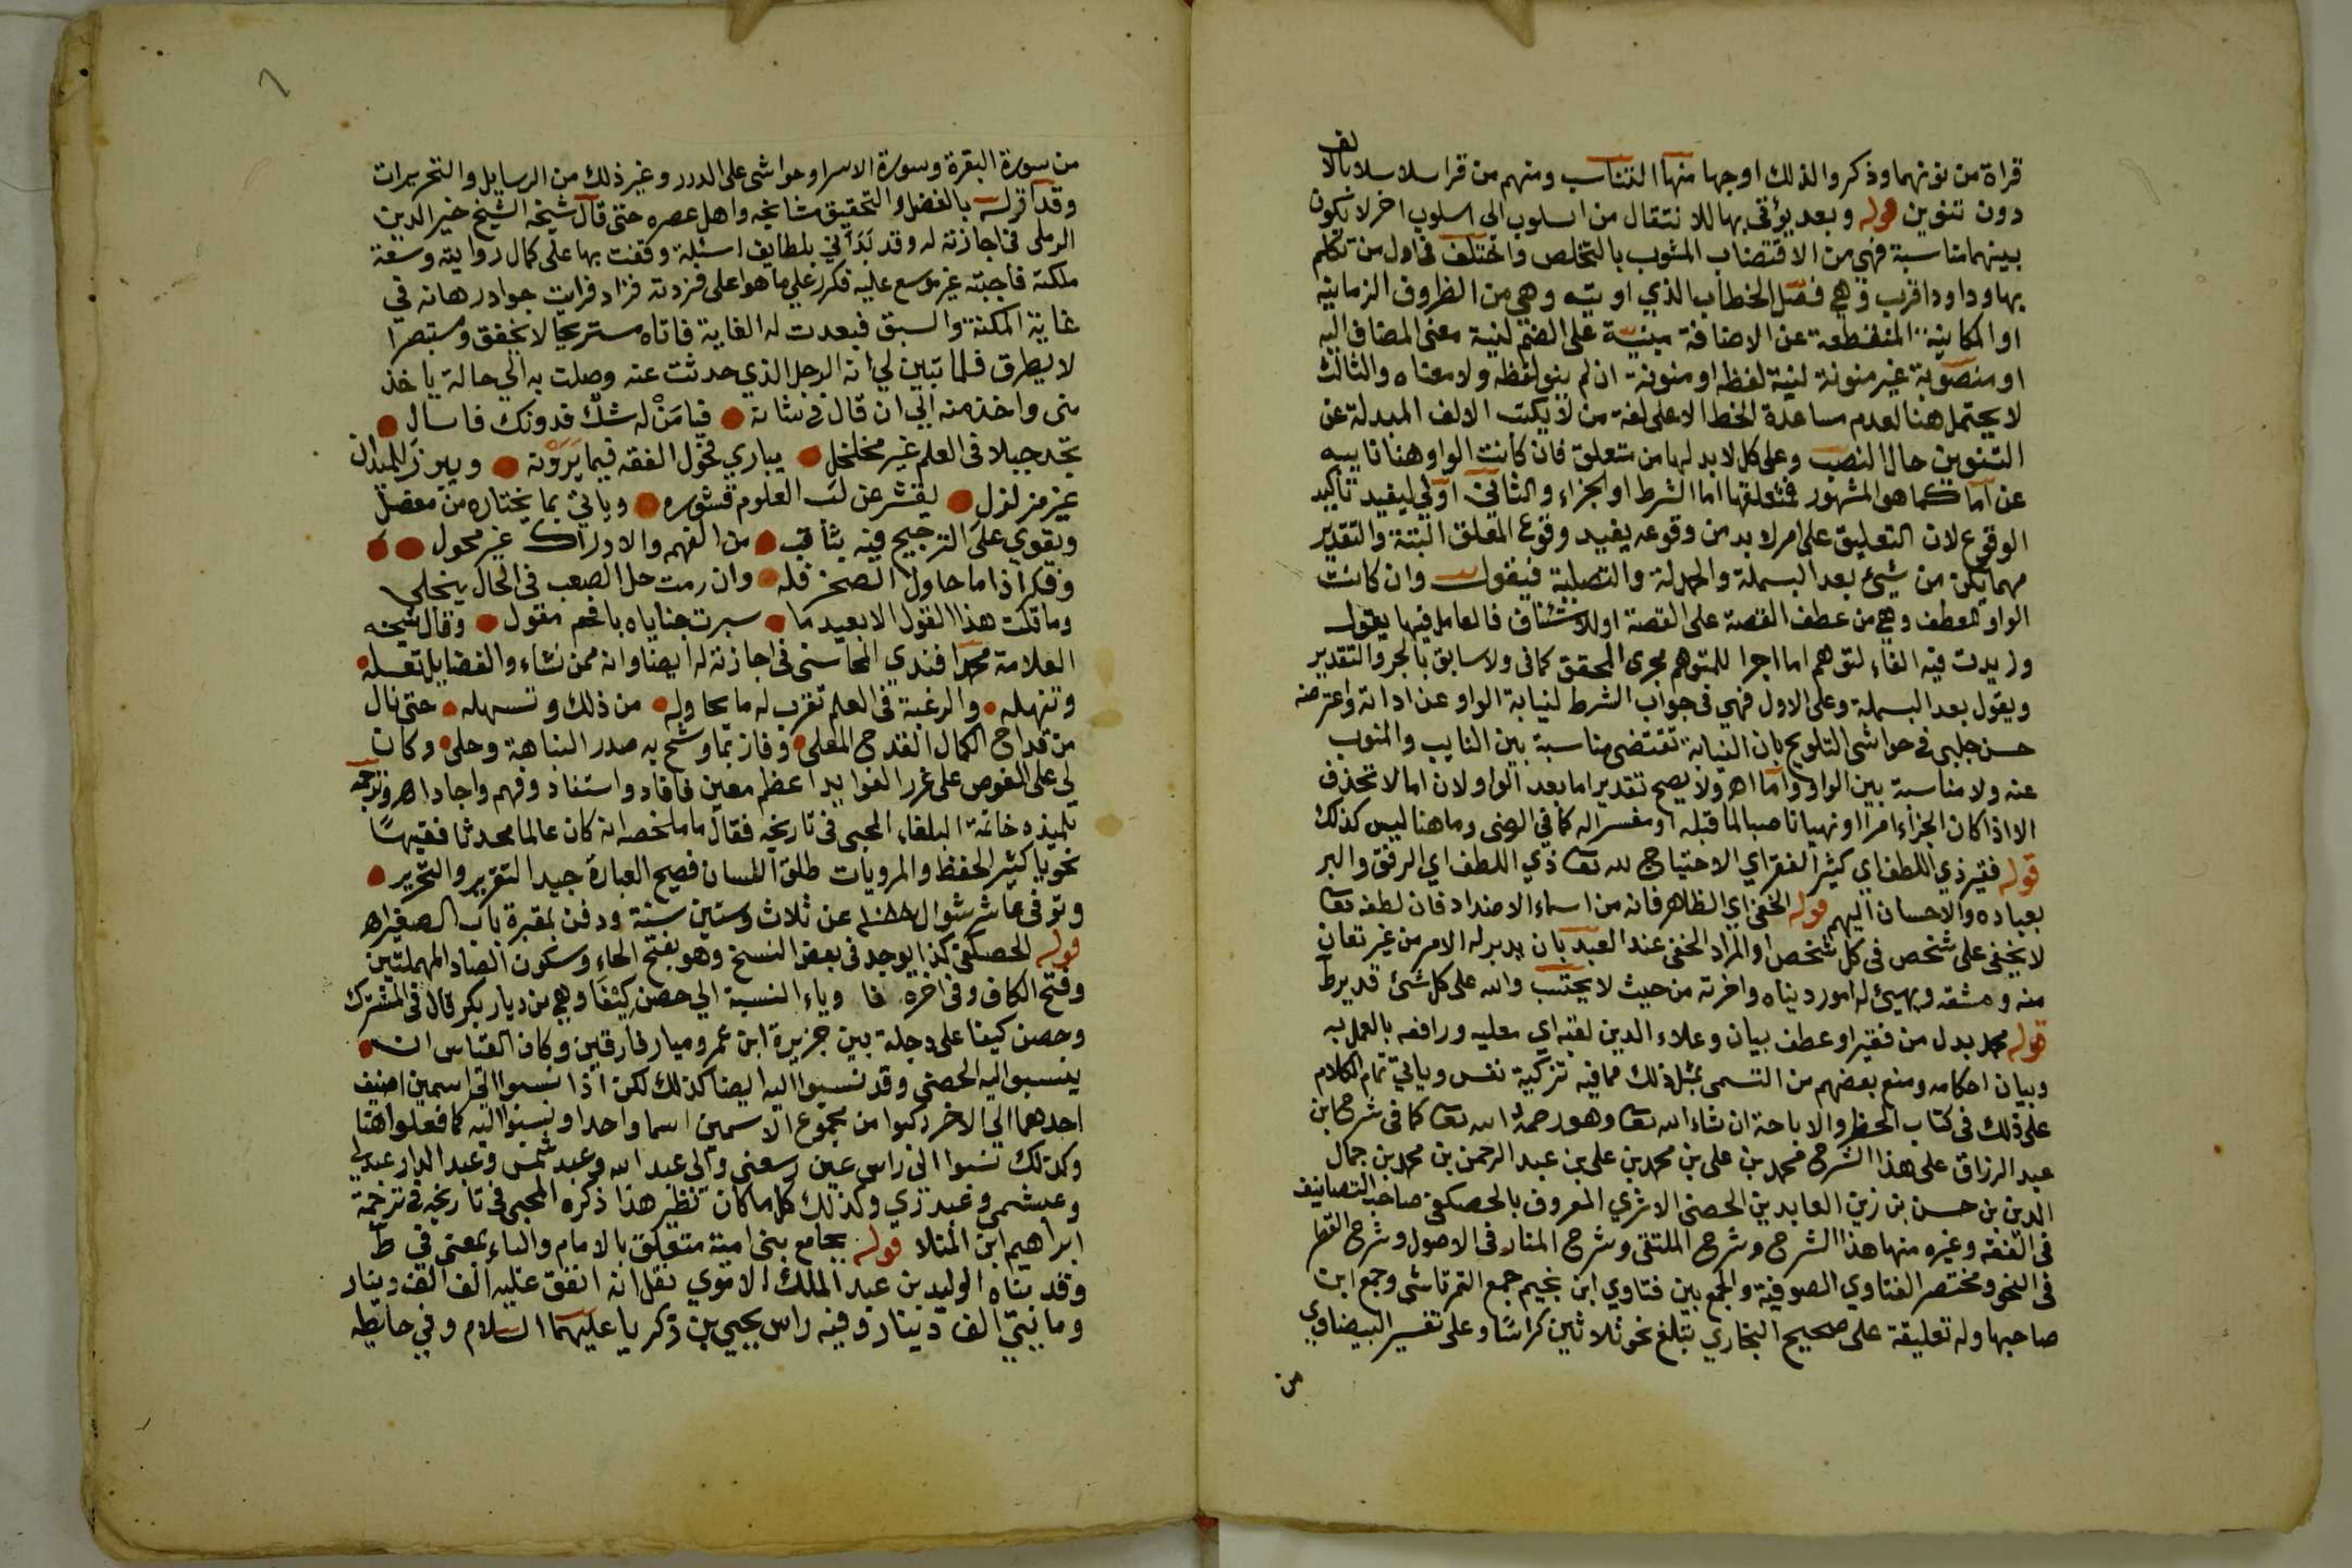 قراة من نونهما وذكروا لذلك اوجها منها التناسب ومنهم من قرا سلاسلا بالالف
دون تنوين قوله وبعد يؤتى بها للانتقال من اسلوب الى اسلوب اخر لا يكون
بينهما مناسبة فهي من الاقتضاب المشوب بالتخلص واختلف في اول من تكلم
بها وداود اقرب وهي فصل الخطاب الذي اوتيه وهي من الظروف الزمانية
او المكانية المنقطعة عن الاضافة مبنية على الضم لنية معنى المضاف اليه
او منصوبة غير منونة لنية لفظه او منونة ان لم ينو لفظه ولا معناه والثالث
لا يحتمل هنا لعدم مساعدة الخط الا على لغة من لا يكتب الالف المبدلة عن
التنوين حال النصب وعلى كل لا بد لها من متعلق فان كانت الواو هنا نايبه
عن اما كما هو المشهور فمتعلقها اما الشرط او الجزاء والثاني اولى ليفيد تاكيد
الوقوع لان التعليق على امر لا بد من وقوعه يفيد وقوع المعلق البتة والتقدير
مهما يكن من شيئ بعد البسملة والحمدلة والتصلية فيقول وان كانت
الواو للعطف وهي من عطف القصة على القصة او للاستئناف فالعامل فيها يقول
وزيدت فيه الفاء لتوهم اما اجرا للمتوهم مجرى المحقق كما في ولا سابق بالجر والتقدير
ويقول بعد البسملة وعلى الاول فهي في جواب الشرط لنيابة الواو عن اداته واعترضه
حسن جلبي في حواشي التلويح بان النيابة تقتضي مناسبة بين النايب والمنوب
عنه ولا مناسبة بين الواو واما اهـ ولا يصح تقدير اما بعد الواو لان اما لا تحذف
الا اذا كان الجزاء امرا او نهيا ناصبا لما قبله او مفسرا له كما في الرضى وما هنا ليس كذلك
قوله فقير ذي اللطف اي كثير الفقر اي الاحتياج لله تعا ذي اللطف اي الرفق والبر
بعباده والاحسان اليهم قوله الخفي اي الظاهر فانه من اسماء الاضداد فان لطفه تعا
لا يخفى على شخص في كل شخص او المراد الخفي عند العبد بان يدبر له الامر من غير تعان
منه ومشقة ويهيئ له امور دنياه واخرته من حيث لا يحتسب والله على كل شئ قدير ط
قوله محمد بدل من فقير او عطف بيان وعلاء الدين لقبه اي معليه ورافعه بالعمل به
وبيان احكامه ومنع بعضهم من التسمى بمثل ذلك مما فيه تزكية نفس وياتي تمام الكلام
على ذلك في كتاب الحظر والاباحة ان شاء الله تعا وهو رحمه الله تعا كما في شرح ابن
عبد الرزاق على هذا الشرح محمد بن على بن محمد بن على بن عبد الرحمن بن محمد بن جمال
الدين بن حسن بن زين العابدين الحصني الاثري المعروف بالحصكفي صاحب التصانيف
في الفقه وغيره منها هذا الشرح وشرح الملتقى وشرح المنار في الاصول وشرح القطر
في النحو ومختصر الفتاوي الصوفية والجمع بين فتاوي ابن نجيم جمع التمرتاشى وجمع ابن
صاحبها وله تعليقة على صحيح البخاري تبلغ نحو ثلاثين كراسا وعلى تفسير البيضاوي
من
من سورة البقرة وسورة الاسرا وحواشى على الدرر وغير ذلك من الرسايل والتحريرات
وقد اقر له بالفضل والتحقيق مشايخه واهل عصره حتى قال شيخه الشيخ خير الدين
الرملى في اجازته له وقد بدانى بلطايف اسئلة وقفت بها على كمال روايته وسعة
ملكته فاجبته غير موسع عليه فكرر علي ما هو اعلى فزدته فزاد فرايت جواد رهانه في
غاية المكنة والسبق فبعدت له الغاية فاتاه مستريحا لا يخفق ومستبصرا
لا يطرق فلما تبين لي انه الرجل الذي حدثت عنه وصلت به الي حالة ياخذ
منى واخذ منه الي ان قال في شانه فيا من له شك فدونك فاسال
تجد جبلا في العلم غير مخلخل يباري فحول الفقه فيما يرونه ويبرز للميدان
غير مزلزل يقشر عن لب العلوم قشوره وياتي بما يختاره من مفصل
ويقوي على الترجيح فيه بثاقب من الفهم والادراك غير محول
وفكر اذا ما حاول الصخر فله وان رمت حل الصعب في الحال ينجلي
وما قلت هذا القول الا بعيد ما سبرت خباياه بافحم مقول وقال شيخه
العلامة محمد افندي المحاسنى في اجازته له ايضا وانه ممن نشاء والفضايل تعله
وتنهله والرغبة في العلم تقرب له ما يحاوله من ذلك وتسهله حتى نال
من قداح الكمال القدح المعلى وفاز بما وشح به صدر النباهة وحلى وكان
لي على الغوص على غرر الفوايد اعظم معين فافاد واستفاد وفهم واجاد اهـ وترجمه
تلميذه خاتمة البلغاء المحبى في تاريخه فقال ما ملخصه انه كان عالما محدثا فقيها
نحويا كثير الحفظ والمرويات طلق اللسان فصيح العبارة جيد التقرير والتحرير
وتوفى عاشر شوال ١٠٨٨ عن ثلاث وستين سنة ودفن بمقبرة باب الصغير اهـ
قوله الحصكفي كذا يوجد في بعض النسخ وهو بفتح الحاء وسكون الصاد المهملتين
وفتح الكاف وفى اخره فا وياء النسبة الي حصن كيفا وهي من ديار بكر قال في المشترك
وحصن كيفا على دجلة بين جزيرة ابن عمر وميافارقين وكان القياس ان
ينسبوا اليه الحصنى وقد نسبوا اليه ايضا كذلك لكن اذا نسبوا الى اسمين اضيف
احدهما الي الاخر ركبوا من مجموع الاسمين اسما واحدا ونسبوا اليه كما فعلوا هنا
وكذلك نسبوا الى راس عين رسعنى والى عبد الله وعبد شمس وعبد الدار عبدلي
وعبشمي وعبدري وكذلك كل ما كان نظير هذا ذكره المحبى في تاريخه في ترجمة
ابراهيم ابن المنلا قوله بجامع بنى امية متعلق بالامام والباء بمعنى في ط
وقد بناه الوليد بن عبد الملك الاموي نقل انه انفق عليه الف الف دينار
ومائتي الف دينار وفيه راس يحيي بن زكريا عليهما السلام وفي حائطه